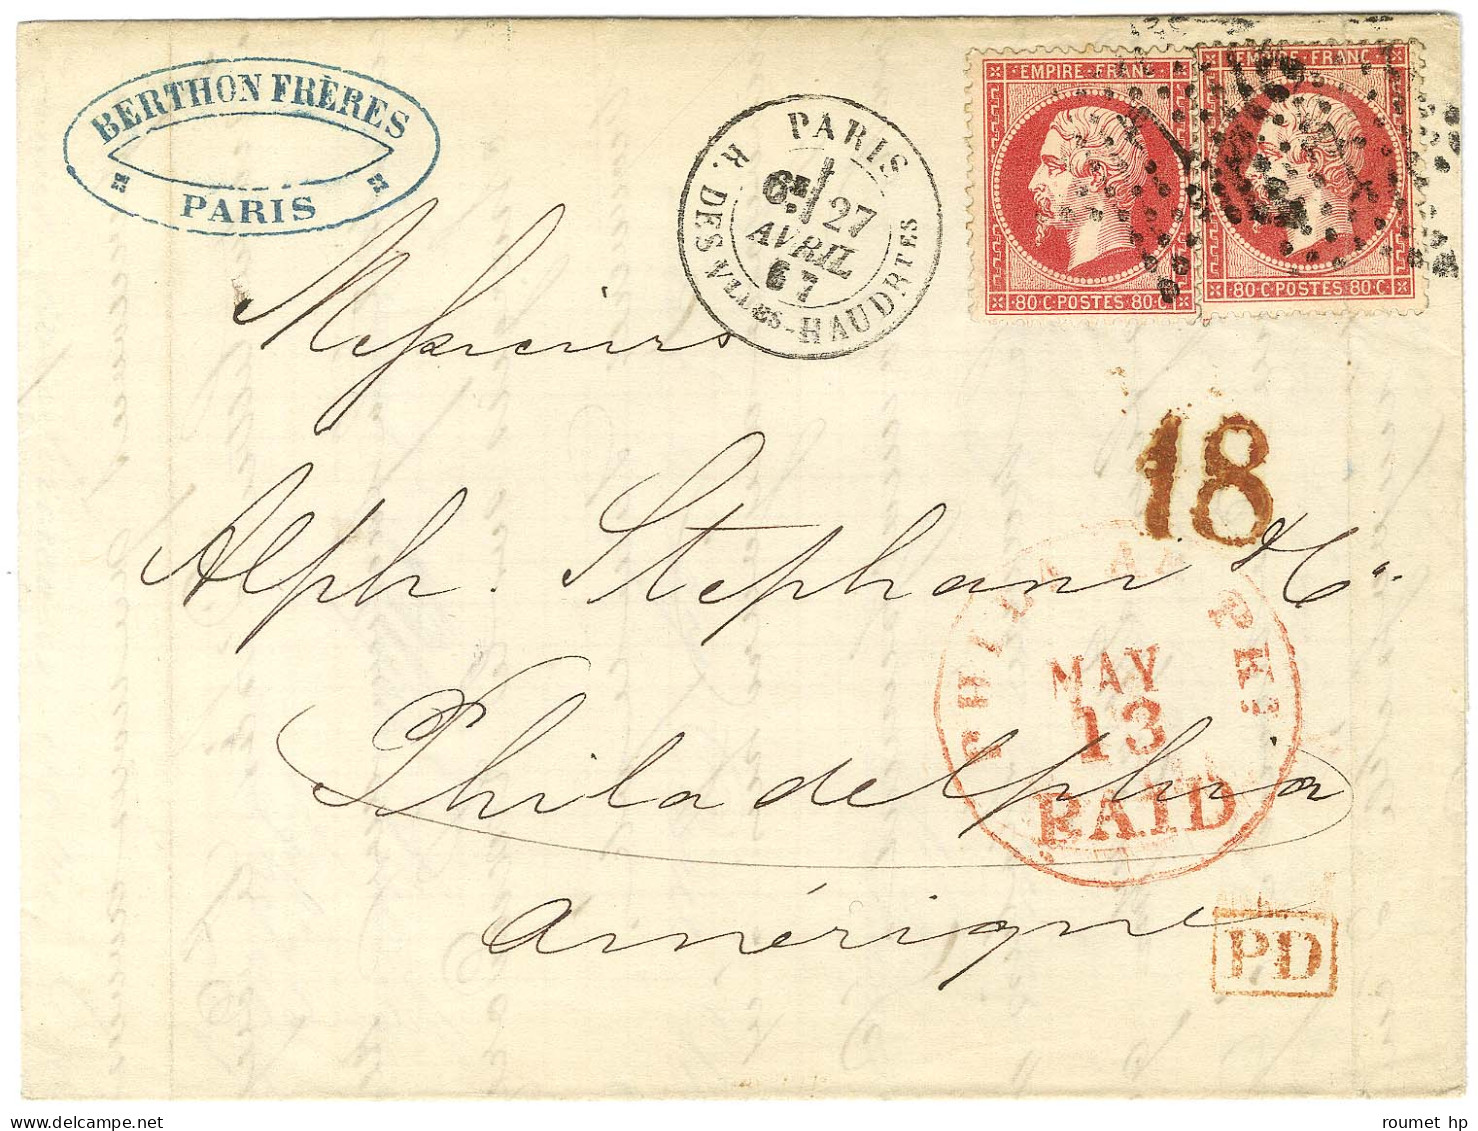 BERTHON FRÈRES
PARIS
PARIS
6E 27
AVRIL
67
R. DES VLLES-HAUDRTES
EMPIRE FRANC
80 C POSTES 80 C
EMPIRE FRANC
80 C POSTES 80 C
Messieurs
18
Alph. Stephani & Cie
PHILADELPHIA
MAY
13
PAID
Philadelphia
Amérique
PD
roumet hp